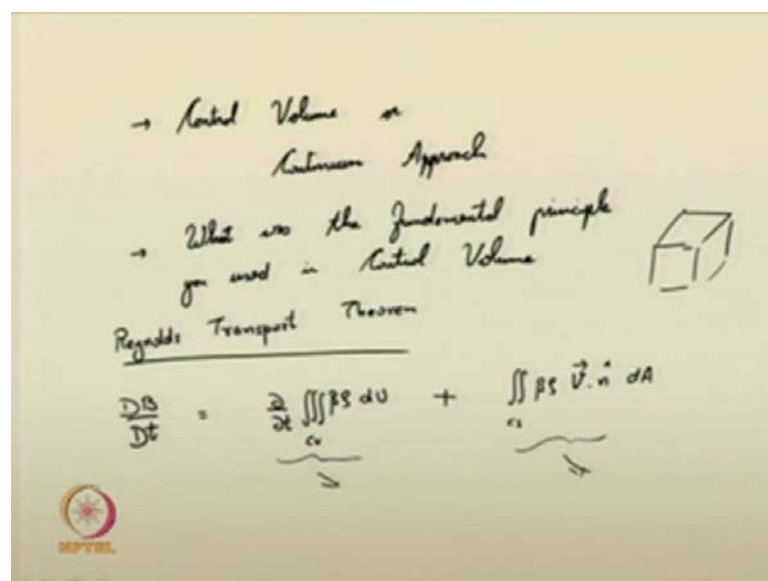 → Control Volume or
Continuum Approach
→ What was the fundamental principle
you used in Control Volume
Reynolds Transport Theorem
DB/Dt = ∂/∂t ∭_cv βρ dU + ∬_cs βρ V⃗.n̂ dA
NPTEL